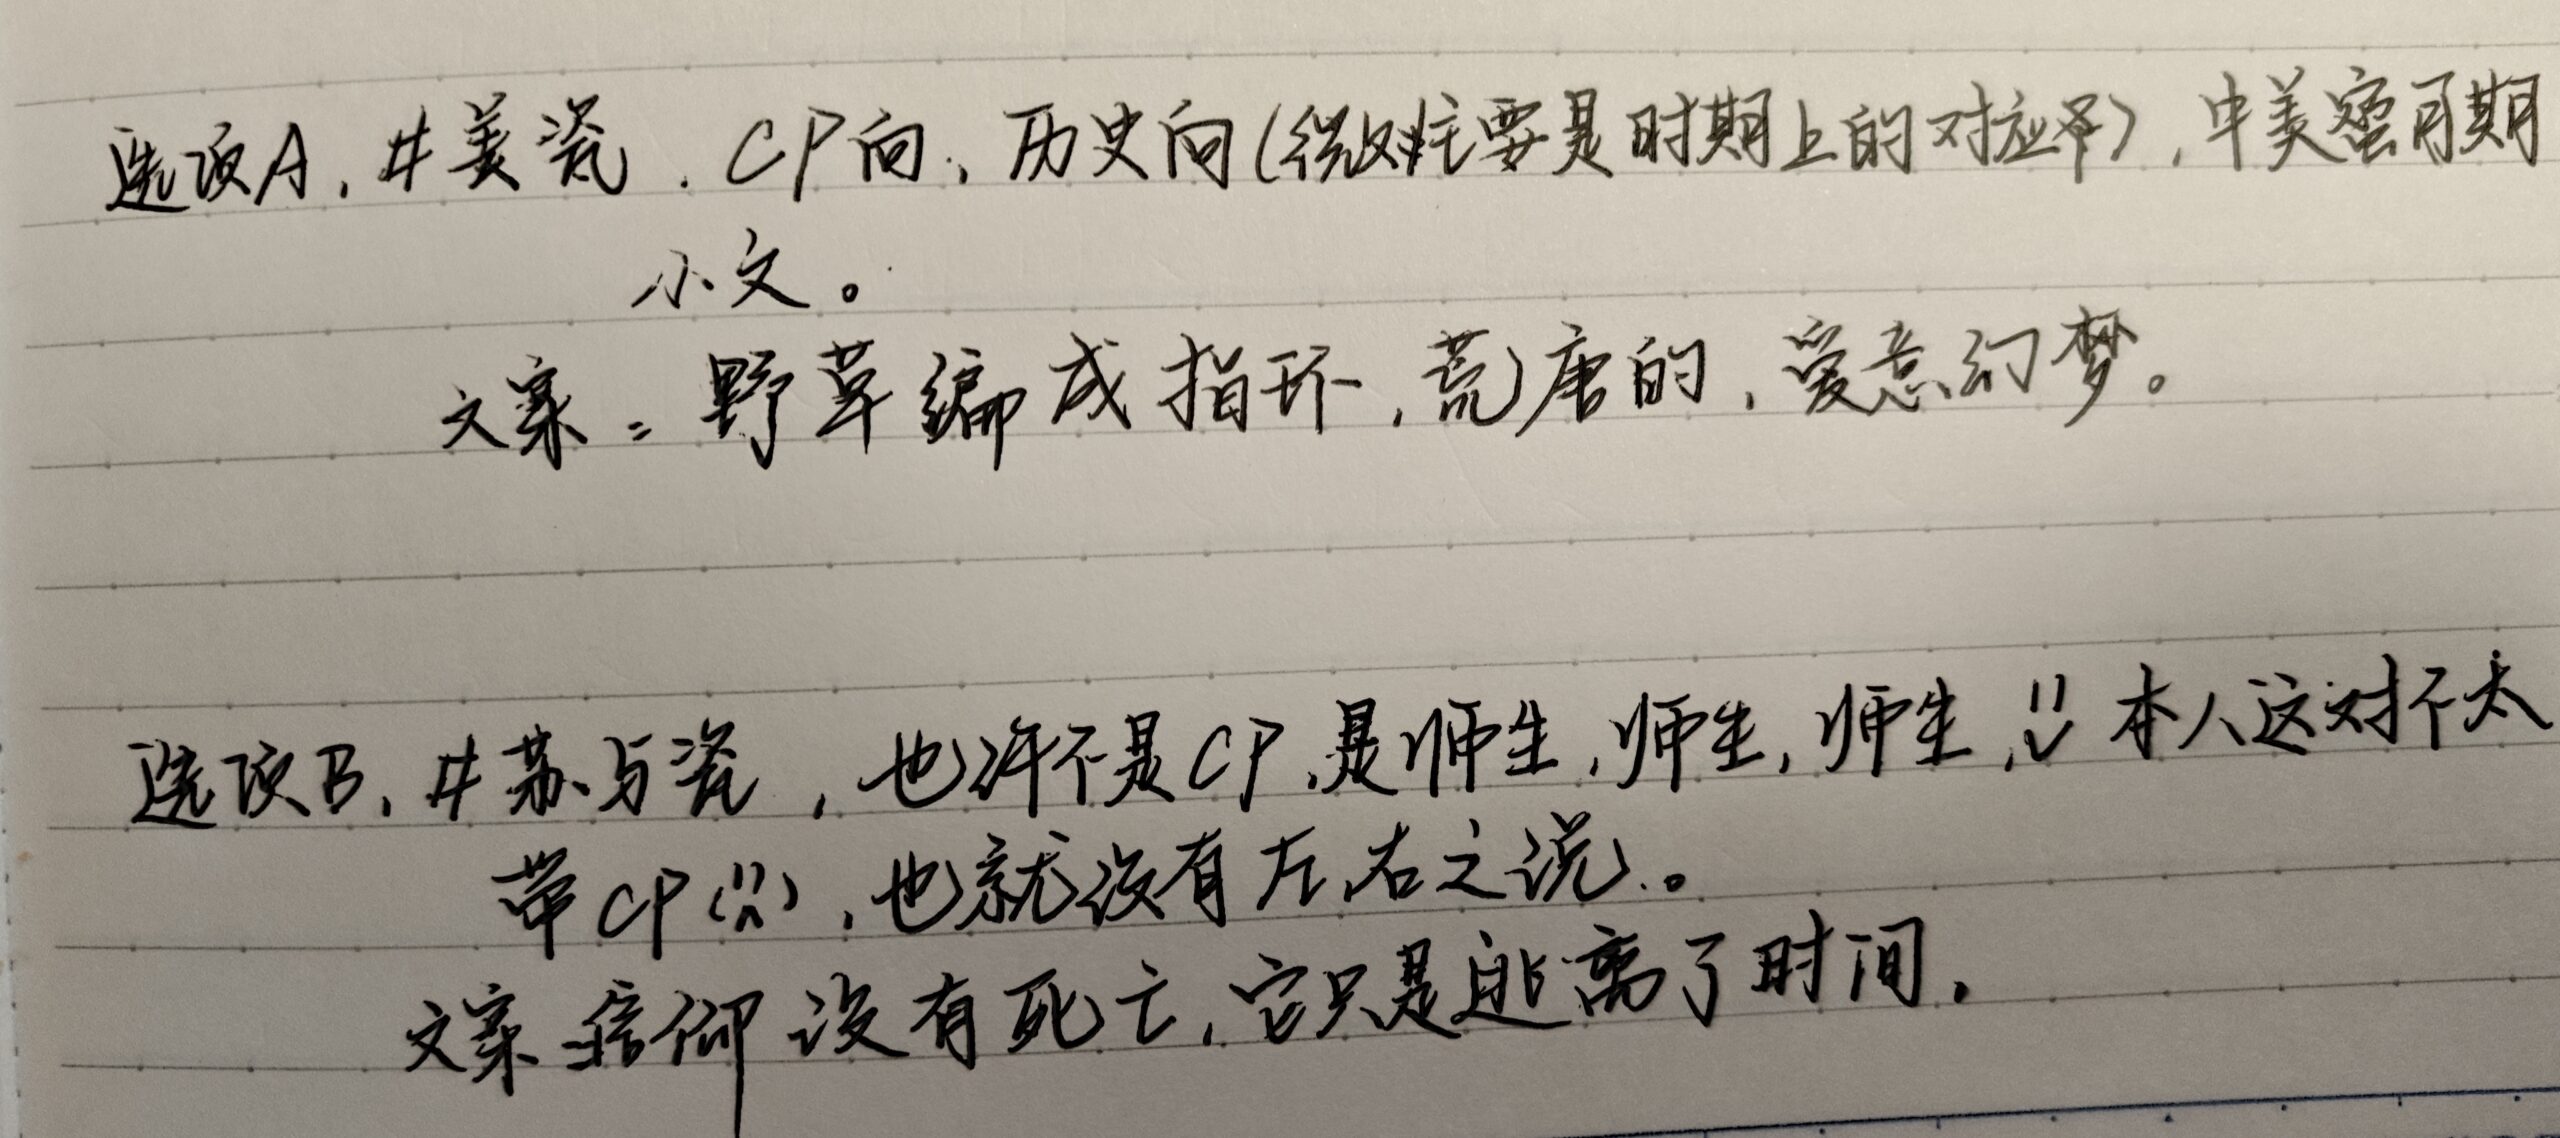 选项A,#美瓷.CP向,历史向(微对,主要是时期上的对应),中美蜜月期
小文。
文案:野草编成指环,荒唐的,爱意幻梦。
选项B,#苏与瓷,也许不是CP,是师生,师生,师生,!!本人这对不太
带CP(),也就没有左右之说。
文案 信仰没有死亡,它只是逃离了时间.